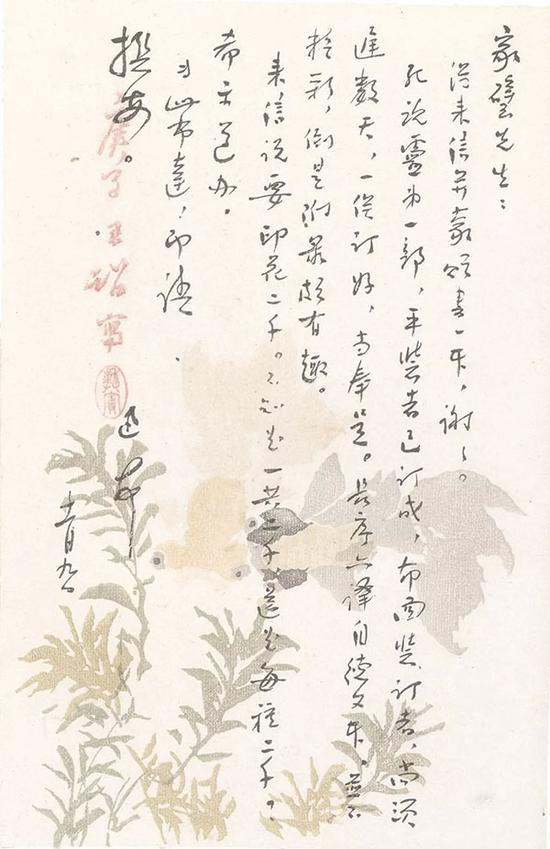 家璧先生：
得来信并蒙
书一本，谢々。
死魂灵第一部，平装者已订成，布面装订者，尚须
迟数天，一俟订好，当奉呈。长序亦译自德文本，并不
精彩，倒是附录颇有趣。
来信说要印花二千。不知是一共二千，还是每种二千？
希示遵办。
专此布达，即请
撰安。
迅
十一月九日
庚子
写